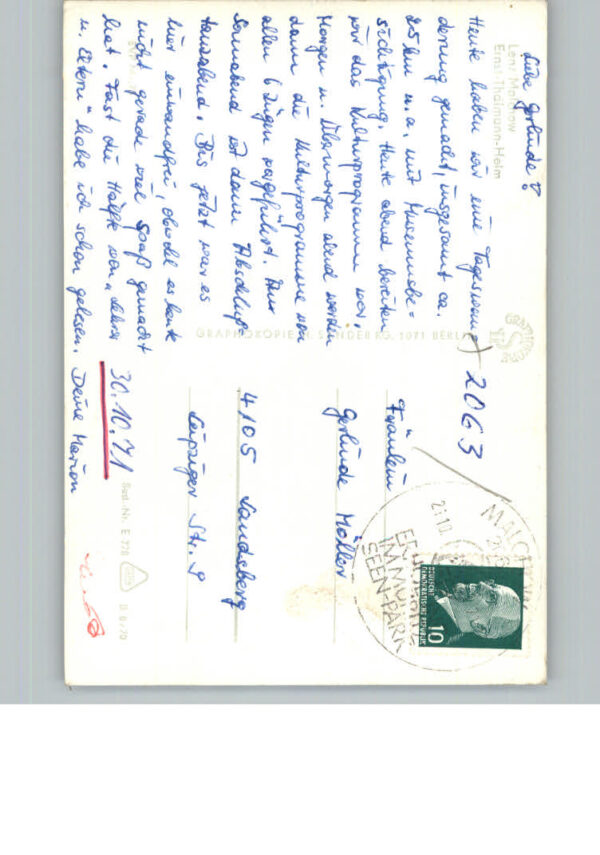 Liebe Gerlinde!
Heute haben wir eine Tageswan=
derung gemacht, insgesamt ca.
25 km u. a. mit Museumsbe=
sichtigung. Heute abend bereiten
wir das Kulturprogramm vor.
Morgen u. Übermorgen abend werden
dann die Kulturprogramme von
allen 6 Zügen vorgeführt. Am
Sonnabend ist dann Abschluß=
tanzabend. Bis jetzt war es
hier einwandfrei, obwohl es heute
nicht gerade viel Spaß gemacht
hat. Fast die Hälfte von „Lehrer
u. Eltern" habe ich schon gelesen. Deine Marion
Lenz Malchow
Ernst-Thälmann-Heim
GRAPHOKOPIE H. SANDER KG, 1071 BERLIN
2063
Fräulein
Gerlinde Möller
4105 Landsberg
Leipziger Str. 9
30.10.71
Best.-Nr. E 778
D 6/70
MALCHOW
ERHOLUNG
IM MÜRITZ
SEEN-PARK
DEUTSCHE
DEMOKRATISCHE REPUBLIK
10